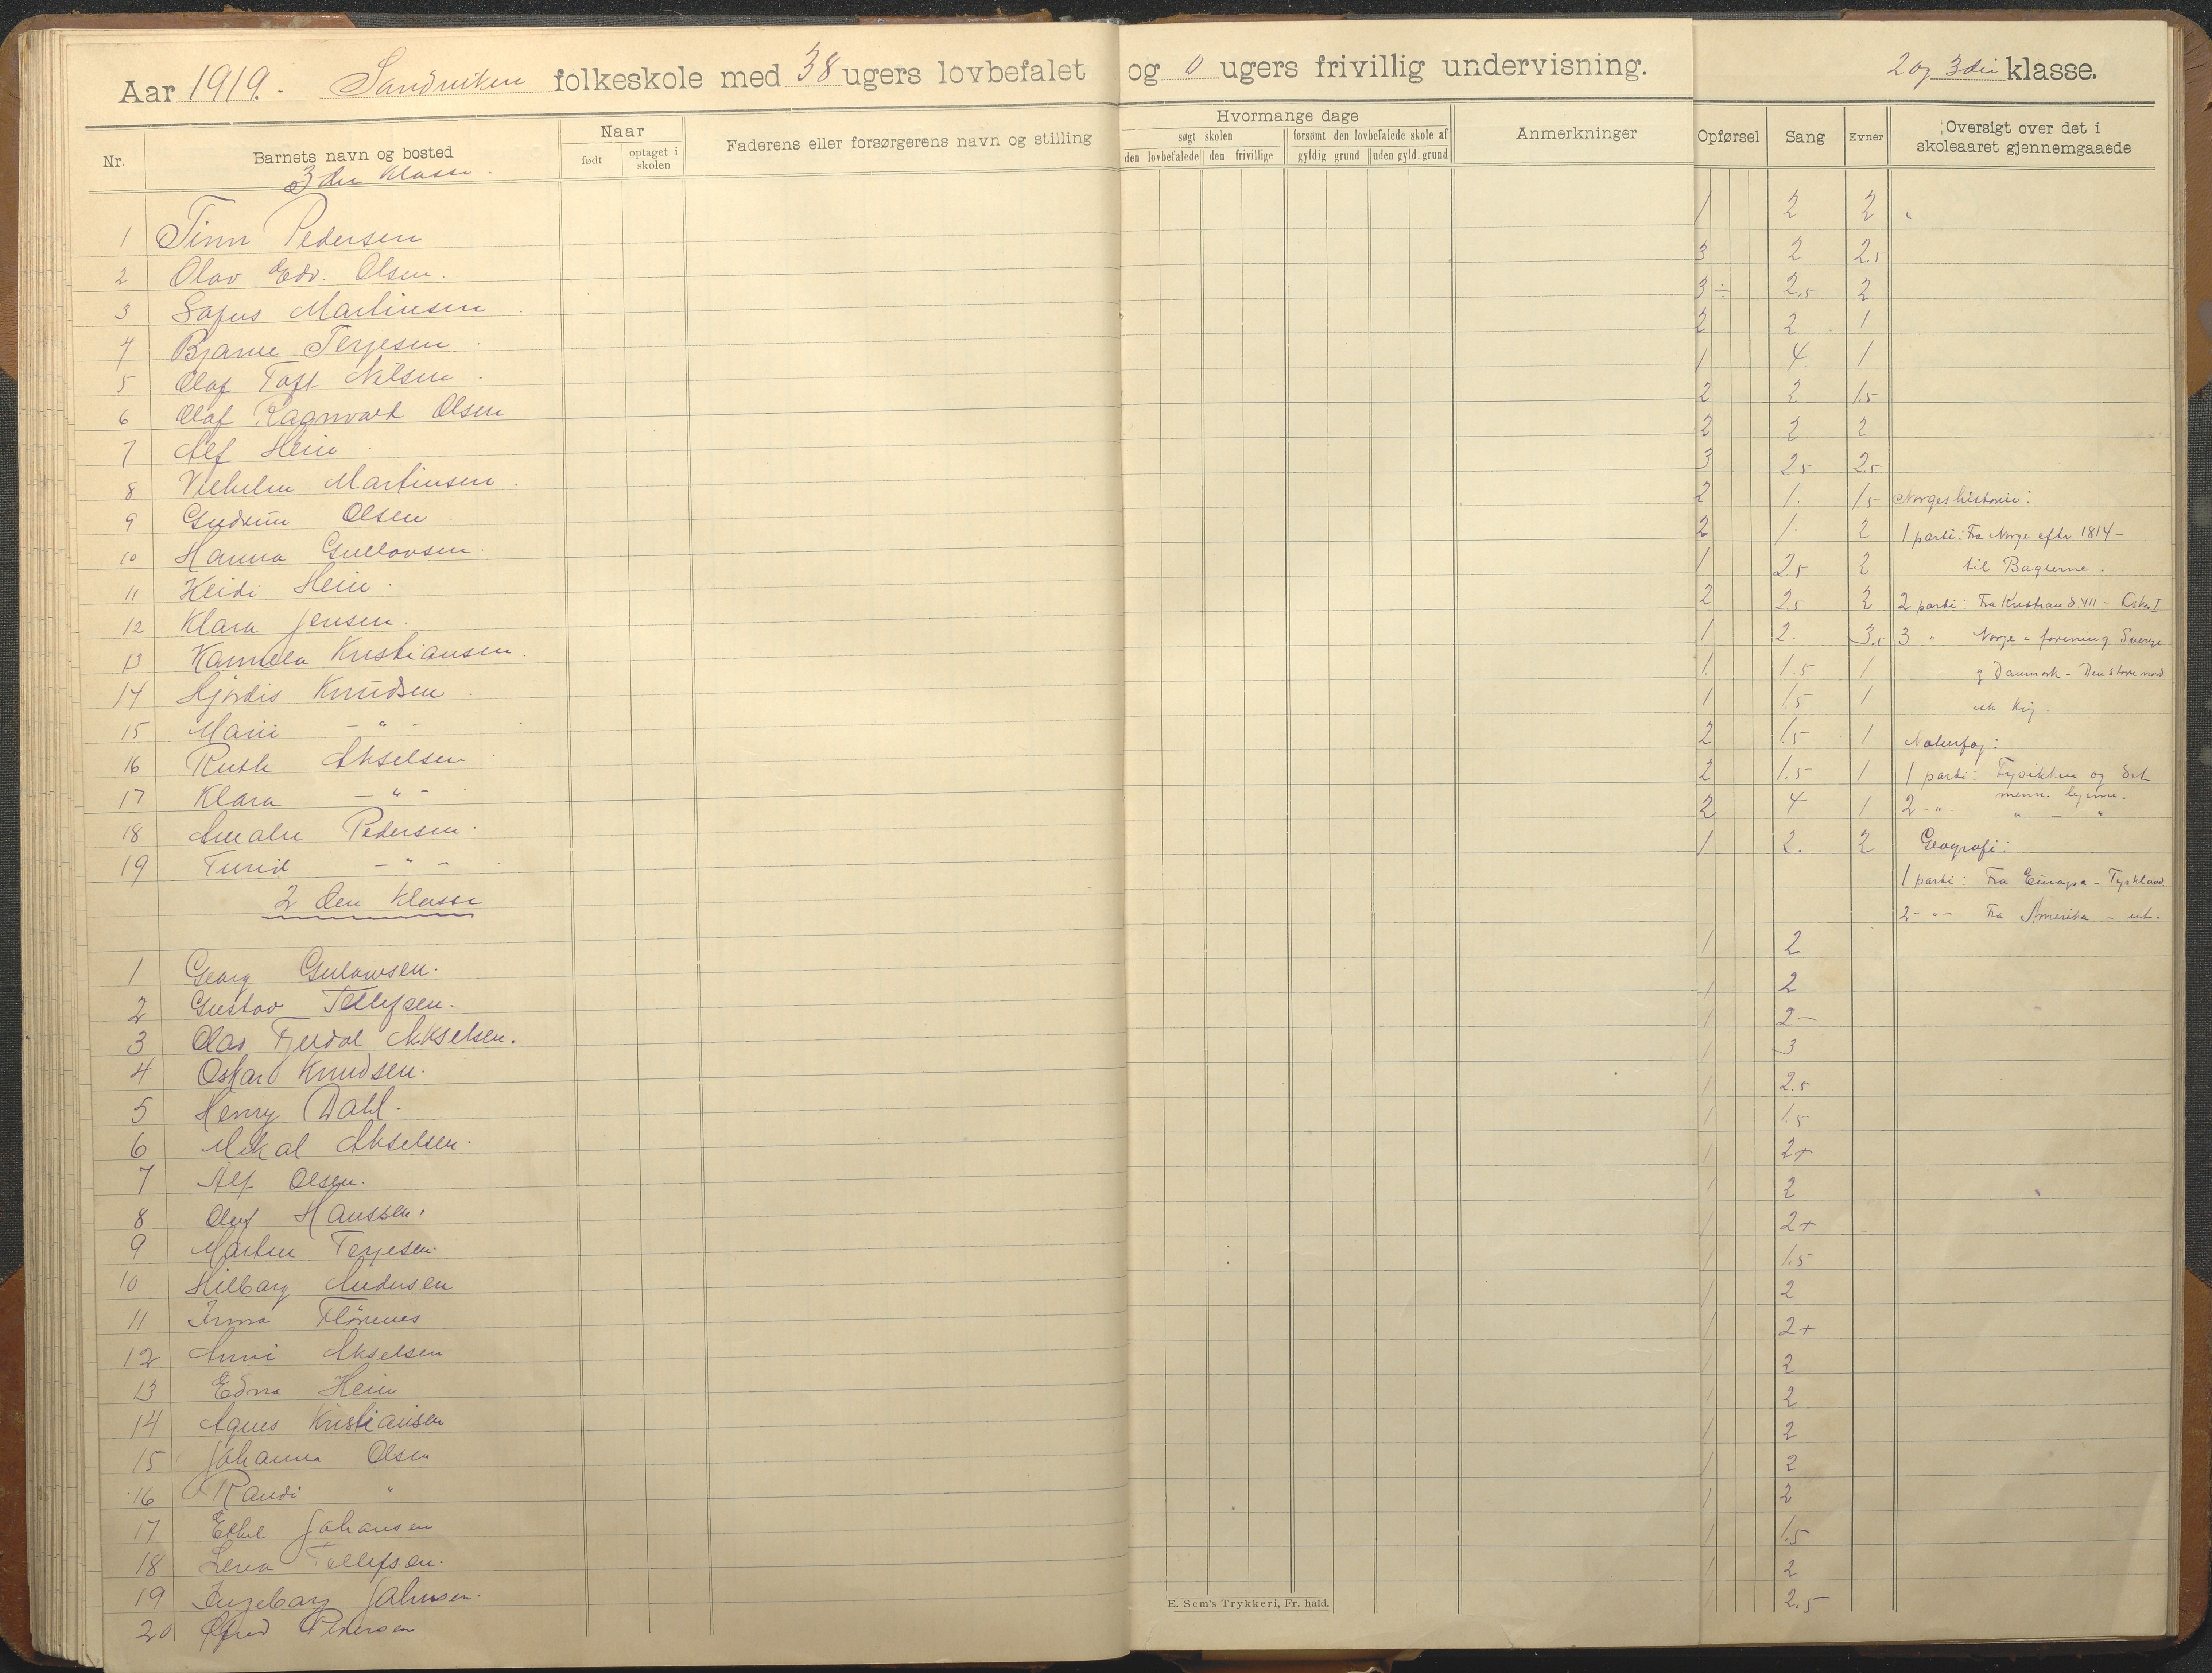 Aar 1919. Sandviken folkeskole med 38 ugers lovbefalet og 0 ugers frivillig undervisning. 2 og 3die klasse.
Nr. Barnets navn og bosted Naar født optaget i skolen Faderens eller forsørgerens navn og stilling
Hvormange dage
søgt skolen forsømt den lovbefalede skole af
den lovbefalede den frivillige gyldig grund uden gyld. grund
Anmerkninger
Opførsel Sang Evner Oversigt over det i skoleaaret gjennemgaaede
3die Klasse
1 Finn Pedersen 1 2 2
2 Olav Edv. Olsen. 3 2 2.5
3 Sofus Martinsen 3 ÷ 2.5 2
4 Bjarne Terjesen 2 2 1
5 Olaf Toft Nilsen 1 4 1
6 Olaf Ragnvald Olsen 2 2 1.5
7 Alf Hein 2 2 2
8 Vilhelm Martinsen 3 2.5 2.5
9 Gudrun Olsen 2 1. 1.5
10 Hanna Gullovsen 2 1. 2
11 Heidi Hein 1 2.5 2
12 Klara Jensen. 2 2.5 2
13 Kamilla Kristiansen. 1 2. 3.5
14 Hjördis Knudsen 1. 1.5 1
15 Marie - " - 1 1.5 1
16 Ruth Akselsen 2 1.5 1
17 Klara - " - 2 1.5 1
18 Amalie Pedersen. 2 4 1
19 Turid - " - 1 2. 2
Norgeshistorie:
1 parti: Fra Norge efter 1814 -
til Baglerne.
2 parti: Fra Kristian d. VII - Oskar I
3 " Norge i forening Sverige
og Danmark - Den store nord
isk krig.
Naturfag:
1 parti: Fysikken og det
menn. legeme.
2 - " - " - "
Geografi:
1 parti: Fra Europa - Tyskland
2 - " - Fra Amerika - ut.
2den Klasse
1 Georg Gulowsen. 1 2
2 Gustav Tellefsen. 1 2
3 Olav Fjerdal Akselsen. 1 2-
4 Oskar Knudsen. 1 3
5 Henry Dahl. 1 2.5
6 Mikal Akselsen. 1 1.5
7 Alf Olsen. 1 2+
8 Oluf Hanssen. 1 2
9 Martin Terjesen. 1 2+
10 Hilborg Andersen 1 1.5
11 Irma Flörenes 1 2
12 Anni Akselsen 1 2+
13 Edna Hein 1 2
14 Agnes Kristiansen 1 2
15 Johanna Olsen 1 2
16 Randi " 1 2
17 Ethel Johansen 1 2
18 Lena Tellefsen. 1 1.5
19 Ingeborg Johnsen. 1 2
20 Pedersen 1 2.5
E. Sem's Trykkeri, Fr. hald.